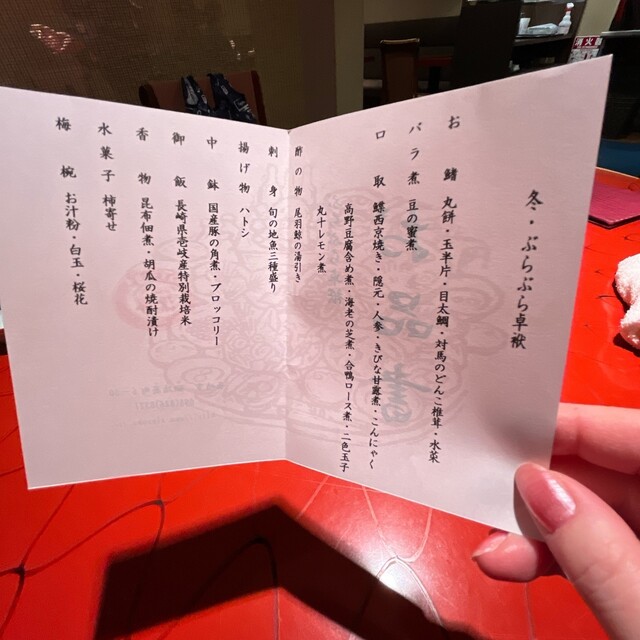 冬・ぶらぶら卓袱
お鰭 丸餅・玉半片・目太鯛・対馬のどんこ椎茸・水菜
バラ煮 豆の蜜煮
口取 鰹西京焼き・隠元・人参・きびな甘露煮・こんにゃく
高野豆腐含め煮・海老の芝煮・合鴨ロース煮・二色玉子
丸干レモン煮
酢の物 尾羽鯨の湯引き
刺身 旬の地魚三種盛り
揚げ物 ハトシ
中鉢 国産豚の角煮・ブロッコリー
御飯 長崎県壱岐産特別栽培米
香物 昆布佃煮・胡瓜の焼酎漬け
水菓子 柿寄せ
梅椀 お汁粉・白玉・桜花
お品書
消火